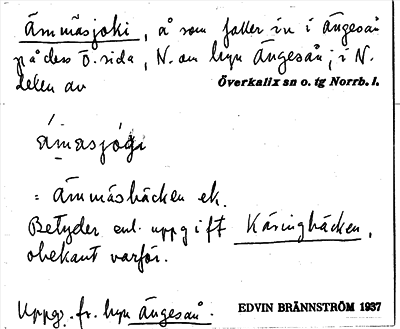 Ämmäsjoki, å som faller in i Ängesån
på dess Ö. sida, N. om byn Ängesån; i N.
delen av Överkalix sn o. tg Norrb. l.
ámasjógi
= Ämmäsbäcken ek.
Betyder enl. uppgift Käringbäcken,
obekant varför.
Uppg. fr. byn Ängesån. EDVIN BRÄNNSTRÖM 1937